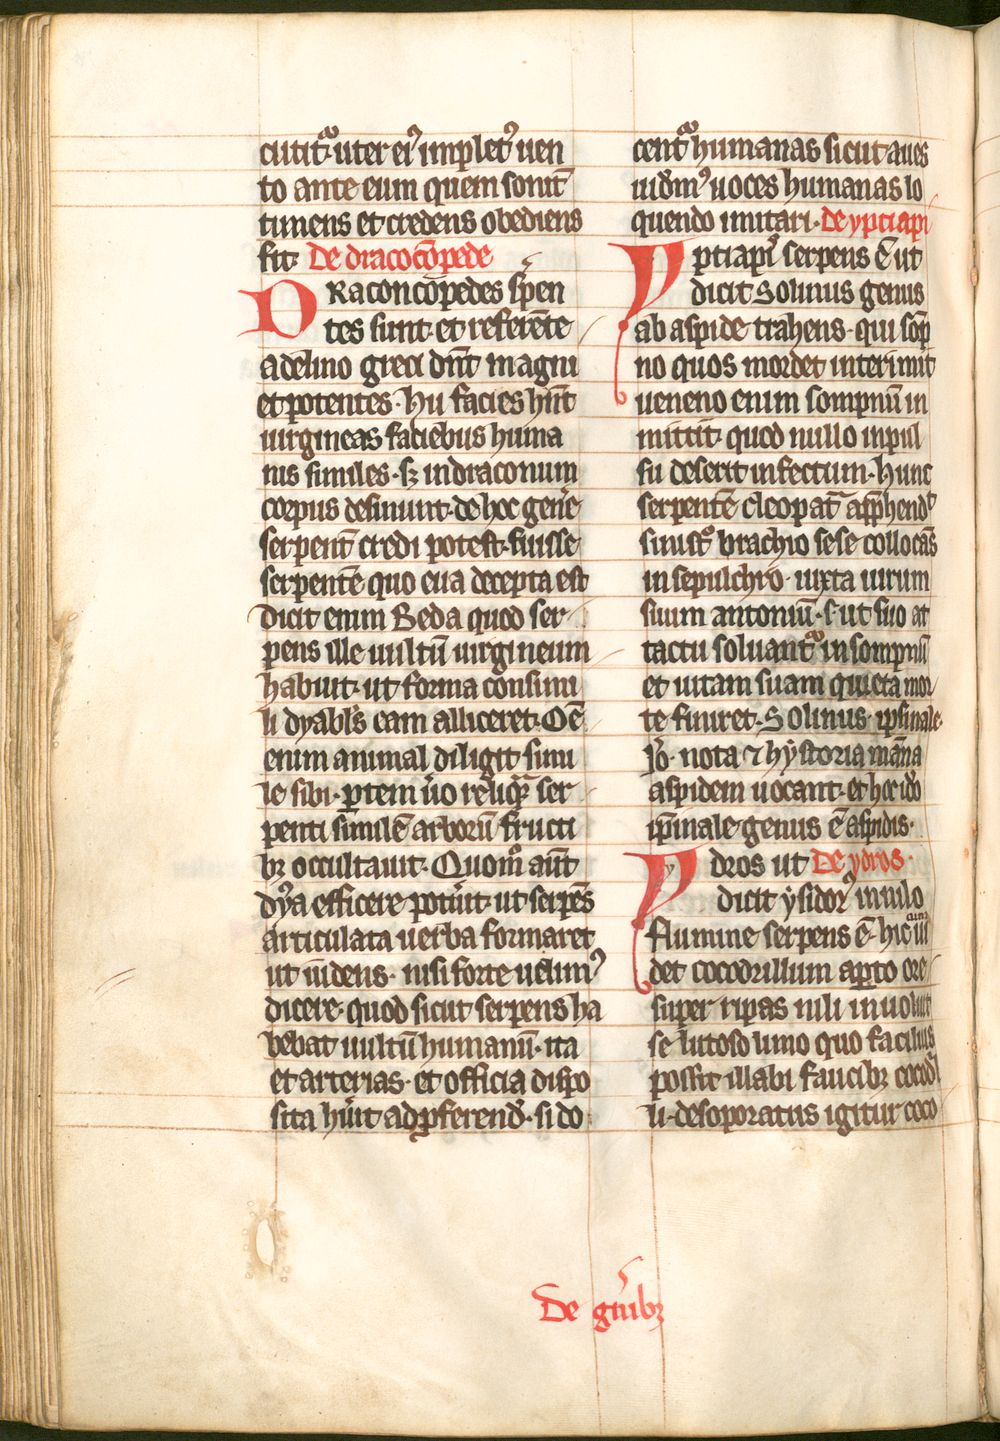 cutitᷓ· uter ei᷒ implet᷒ uen
to ante eum quem sonit̄
timens et credens obediens
fit· De dracocōpede
DRaconcōpedes s͛pen
tes sunt· et referēte
adelino greci dn̄t magni
et potentes· Hii facies hn̄t
uirgineas faciebus huma
nis similes· sꝫ in draconum
corpus desinunt· de hoc gen͛e
serpent̄ credi potest· fuisse
serpentē quo eua decepta est
dicit enim Beda quod ser
pens ille uultū uirgineum
habuit· ut forma consimi
li dyabl̓s eam alliceret· Oē
enim animal diligit simi
le sibi· ꝑtem u͛o reliq̄ ser
penti similē arborū fructi
bꝫ occultauit· Quom̊ aūt
dẏa efficere potu͛it· ut serpēs
articulata uerba formaret
ut uidens· nisi forte uelim᷒
dicere· quod sicut serpens ha
bebat uultū humanū· ita
et arterias· et officia dispo
sita hu͛it ad ꝓferend̄· si do
centᷓ humanas sicut aues
uidem᷒ uoces humanas lo
quendo imitari· de yptiapi
Yptiapi᷒ serpens ē ut
dicit Solinus genus
ab aspide trahens· qui sōp
no quos mordet interimit
ueneno enim sompnū in
mittit· quod nullo inpul
su deserit infectum· Hunc
serpentē cleopat͛ app̄hend̓t
sinist͛o brachio sese collocās
in sepulchro· iuxta uirum
suum antoniū· s· ut suo at
tactu soluantᷓ in sompnū
et uitam suam quieta mor
te finiret· Solinus· ipsinale
Jo̊· nota ⁊ hystoria mag̅na
aspidem uocant· et hoc id̊o
ip̄inale genus ē aspidis·
Ydros ut De ydros·
dicit ysidor᷒ in nilo
flumine serpens ē· hic cum ui
det cocodrillum aꝑto ore
super ripas nili inuoluit
se lutoso limo quo facilius
possit illabi faucibꝫ cocod͛l
li· desoporatus igitur coco
De gͥuibꝫ